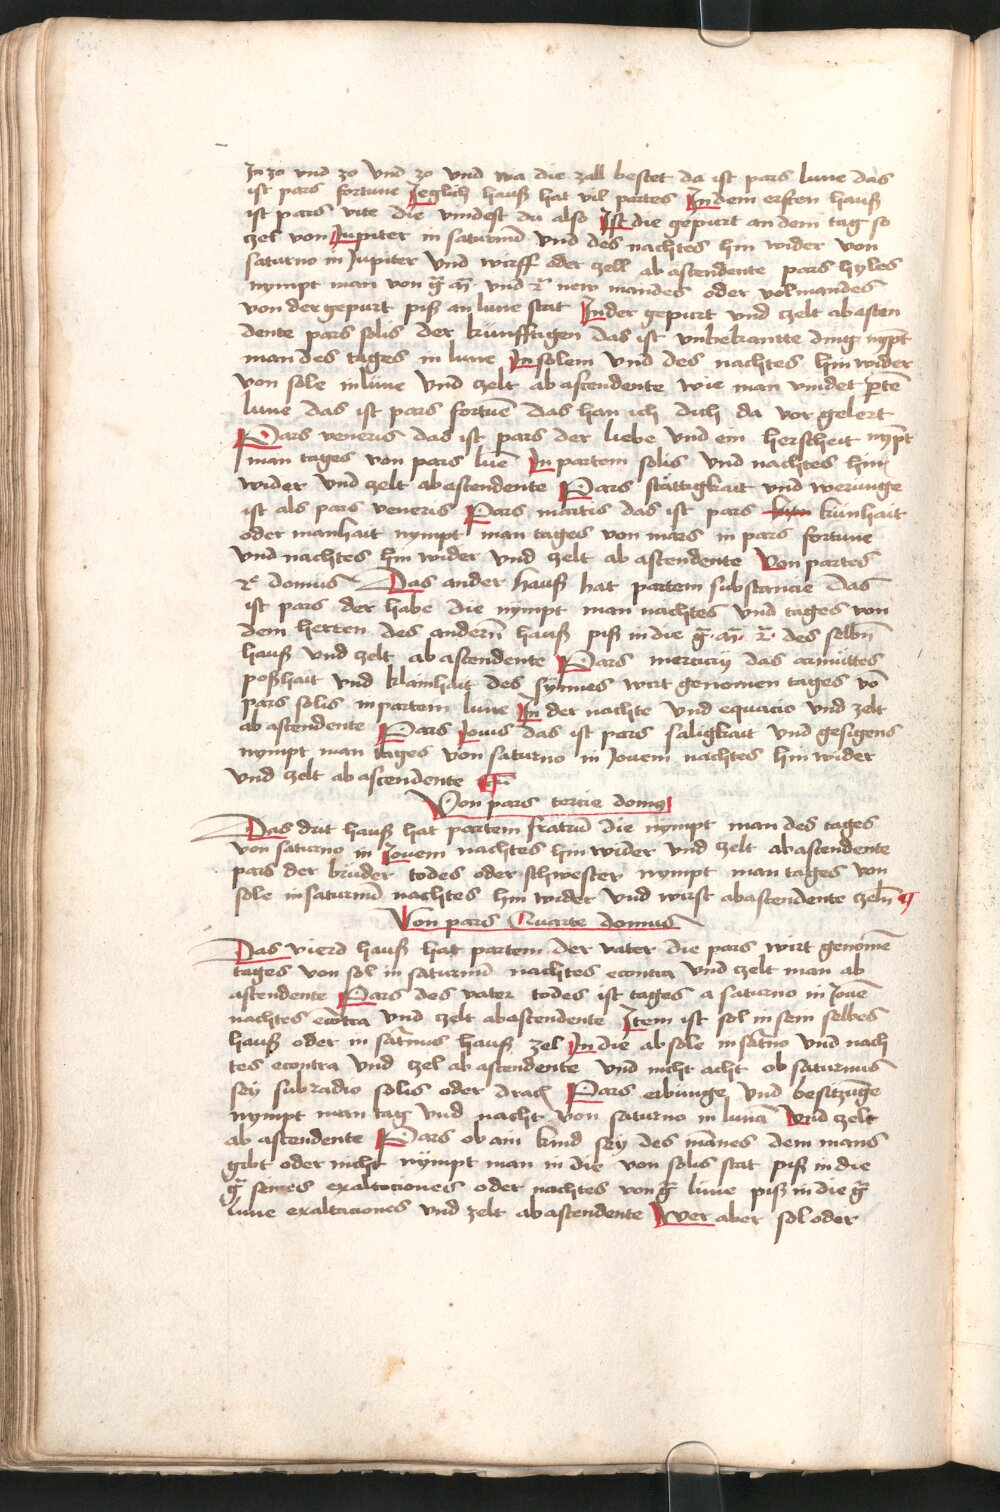 In 30 vnd 30 vnd 30 vnd wa die zall bestet da ist pars lune das
ist pars fortune Jeglich hauß hat vil partes In dem ersten hauß
ist pars vite die vindest du also Ist die gepurt an dem tag so
zel von Jupiter in saturnū vnd des nachtes hin wider von
saturno in Jupiter vnd wirff oder zell ab ascendente pars hyles
nympt man von new mandes oder volmandes
von der gepurt piß an lune stat In der gepurt vnd zelt ab ascen
dente pars solis der künfftigen das ist vnbekantte ding nỹpt
man des tages in lune In solem vnd des nachtes hin wider
von sole in lune vnd zelt ab ascendente wie man vindet ptē
lune das ist pars fortuē das han ich dich da vor gelert
Pars veneris das ist pars der liebe vnd ein herscheit nỹpt
man tages von pars luē In partem solis vnd nachtes hin
wider vnd zelt ab ascendente Pars stättigkait vnd werunge
ist als pars veneris Pars martis das ist pars künhait
oder manhait nympt man tages von mars in pars fortune
vnd nachtes hin wider vnd zelt ab ascendente Von partes
2e domus Das ander hauß hat partem substancie das
ist pars der habe die nympt man nachtes vnd tages von
dem herren des andern̄ hauß piß in die des selbn̄
hauß vnd zelt ab ascendente Pars mercurij das armüttes
poßhait vnd klainhait des synnes wirt genomen tages vō
pars solis in partem lune In der nachte vnd equacio vnd zelt
ab ascendente Pars Jouis das ist pars säligkait vnd gesigens
nympt man tages von saturno in Jouem nachtes hin wider
vnd zelt ab ascendente
Von pars tercie domus
Das drit hauß hat partem fratrū die nympt man des tages
von saturno in Jouem nachtes hin wider vnd zelt ab ascendente
pars der brüder todes oder schwester nympt man tages von
sole in saturnū nachtes hin wider vnd wirft ab ascendente zeln̄
Von pars Quarte domus
Das vierd hauß hat partem der vater die pars wirt genomē
tages von sol in saturnū nachtes econtra vnd zelt man ab
ascendente Pars des vater todes ist tages a saturno in Jouē
nachtes ecōtra vnd zelt ab ascendente Item ist sol in sein selbes
hauß oder in sat̄nus hauß zel In die ab sole in sat̄no vnd nach
tes econtra vnd zel ab ascendente vnd nicht acht ob saturnus
sey sub radio solis oder drach Pars erbunge vnd besitzūge
nympt man tag vnd nacht von saturno in lunā vnd zelt
ab ascendente Pars ob ain kind sey des mānes dem mans
gibt oder nicht nympt man in die von solis stat piß in die
seines exaltaciones oder nachtes von lune piß in die
lune exaltaciones vnd zelt ab ascendente Wer aber sol oder